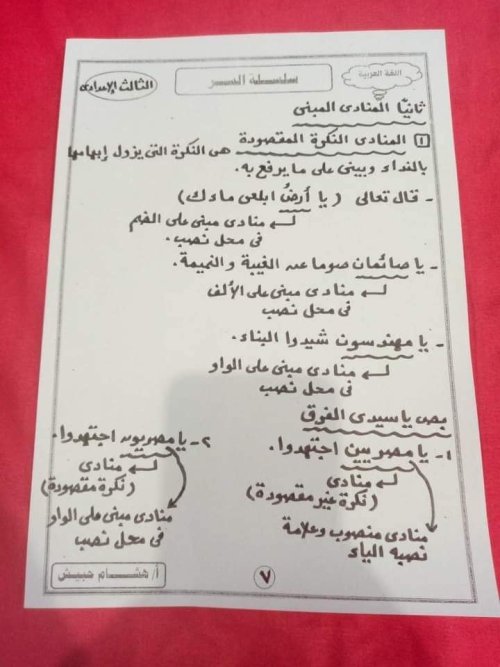 اللغة العربية
سلسلة العبير
الثالث الإعدادى
ثانيًا المنادى المبنى
١ المنادى النكرة المقصودة هى النكرة التى يزول إبهامها
بالنداء ويبنى على ما يرفع به.
- قال تعالى (يا أرضُ ابلعى ماءك)
منادى مبنى على الضم
فى محل نصب.
- يا صائمان صوما عن الغيبة والنميمة.
منادى مبنى على الألف
فى محل نصب
- يا مهندسون شيدوا البناء.
منادى مبنى على الواو
فى محل نصب
بص ياسيدى الفرق
١- يا مصريين اجتهدوا.
منادى
(نكرة غير مقصودة)
منادى منصوب وعلامة
نصبه الياء
٢- يا مصريون اجتهدوا.
منادى
(نكرة مقصودة)
منادى مبنى على الواو
فى محل نصب
٧
أ/ هشام حبيش